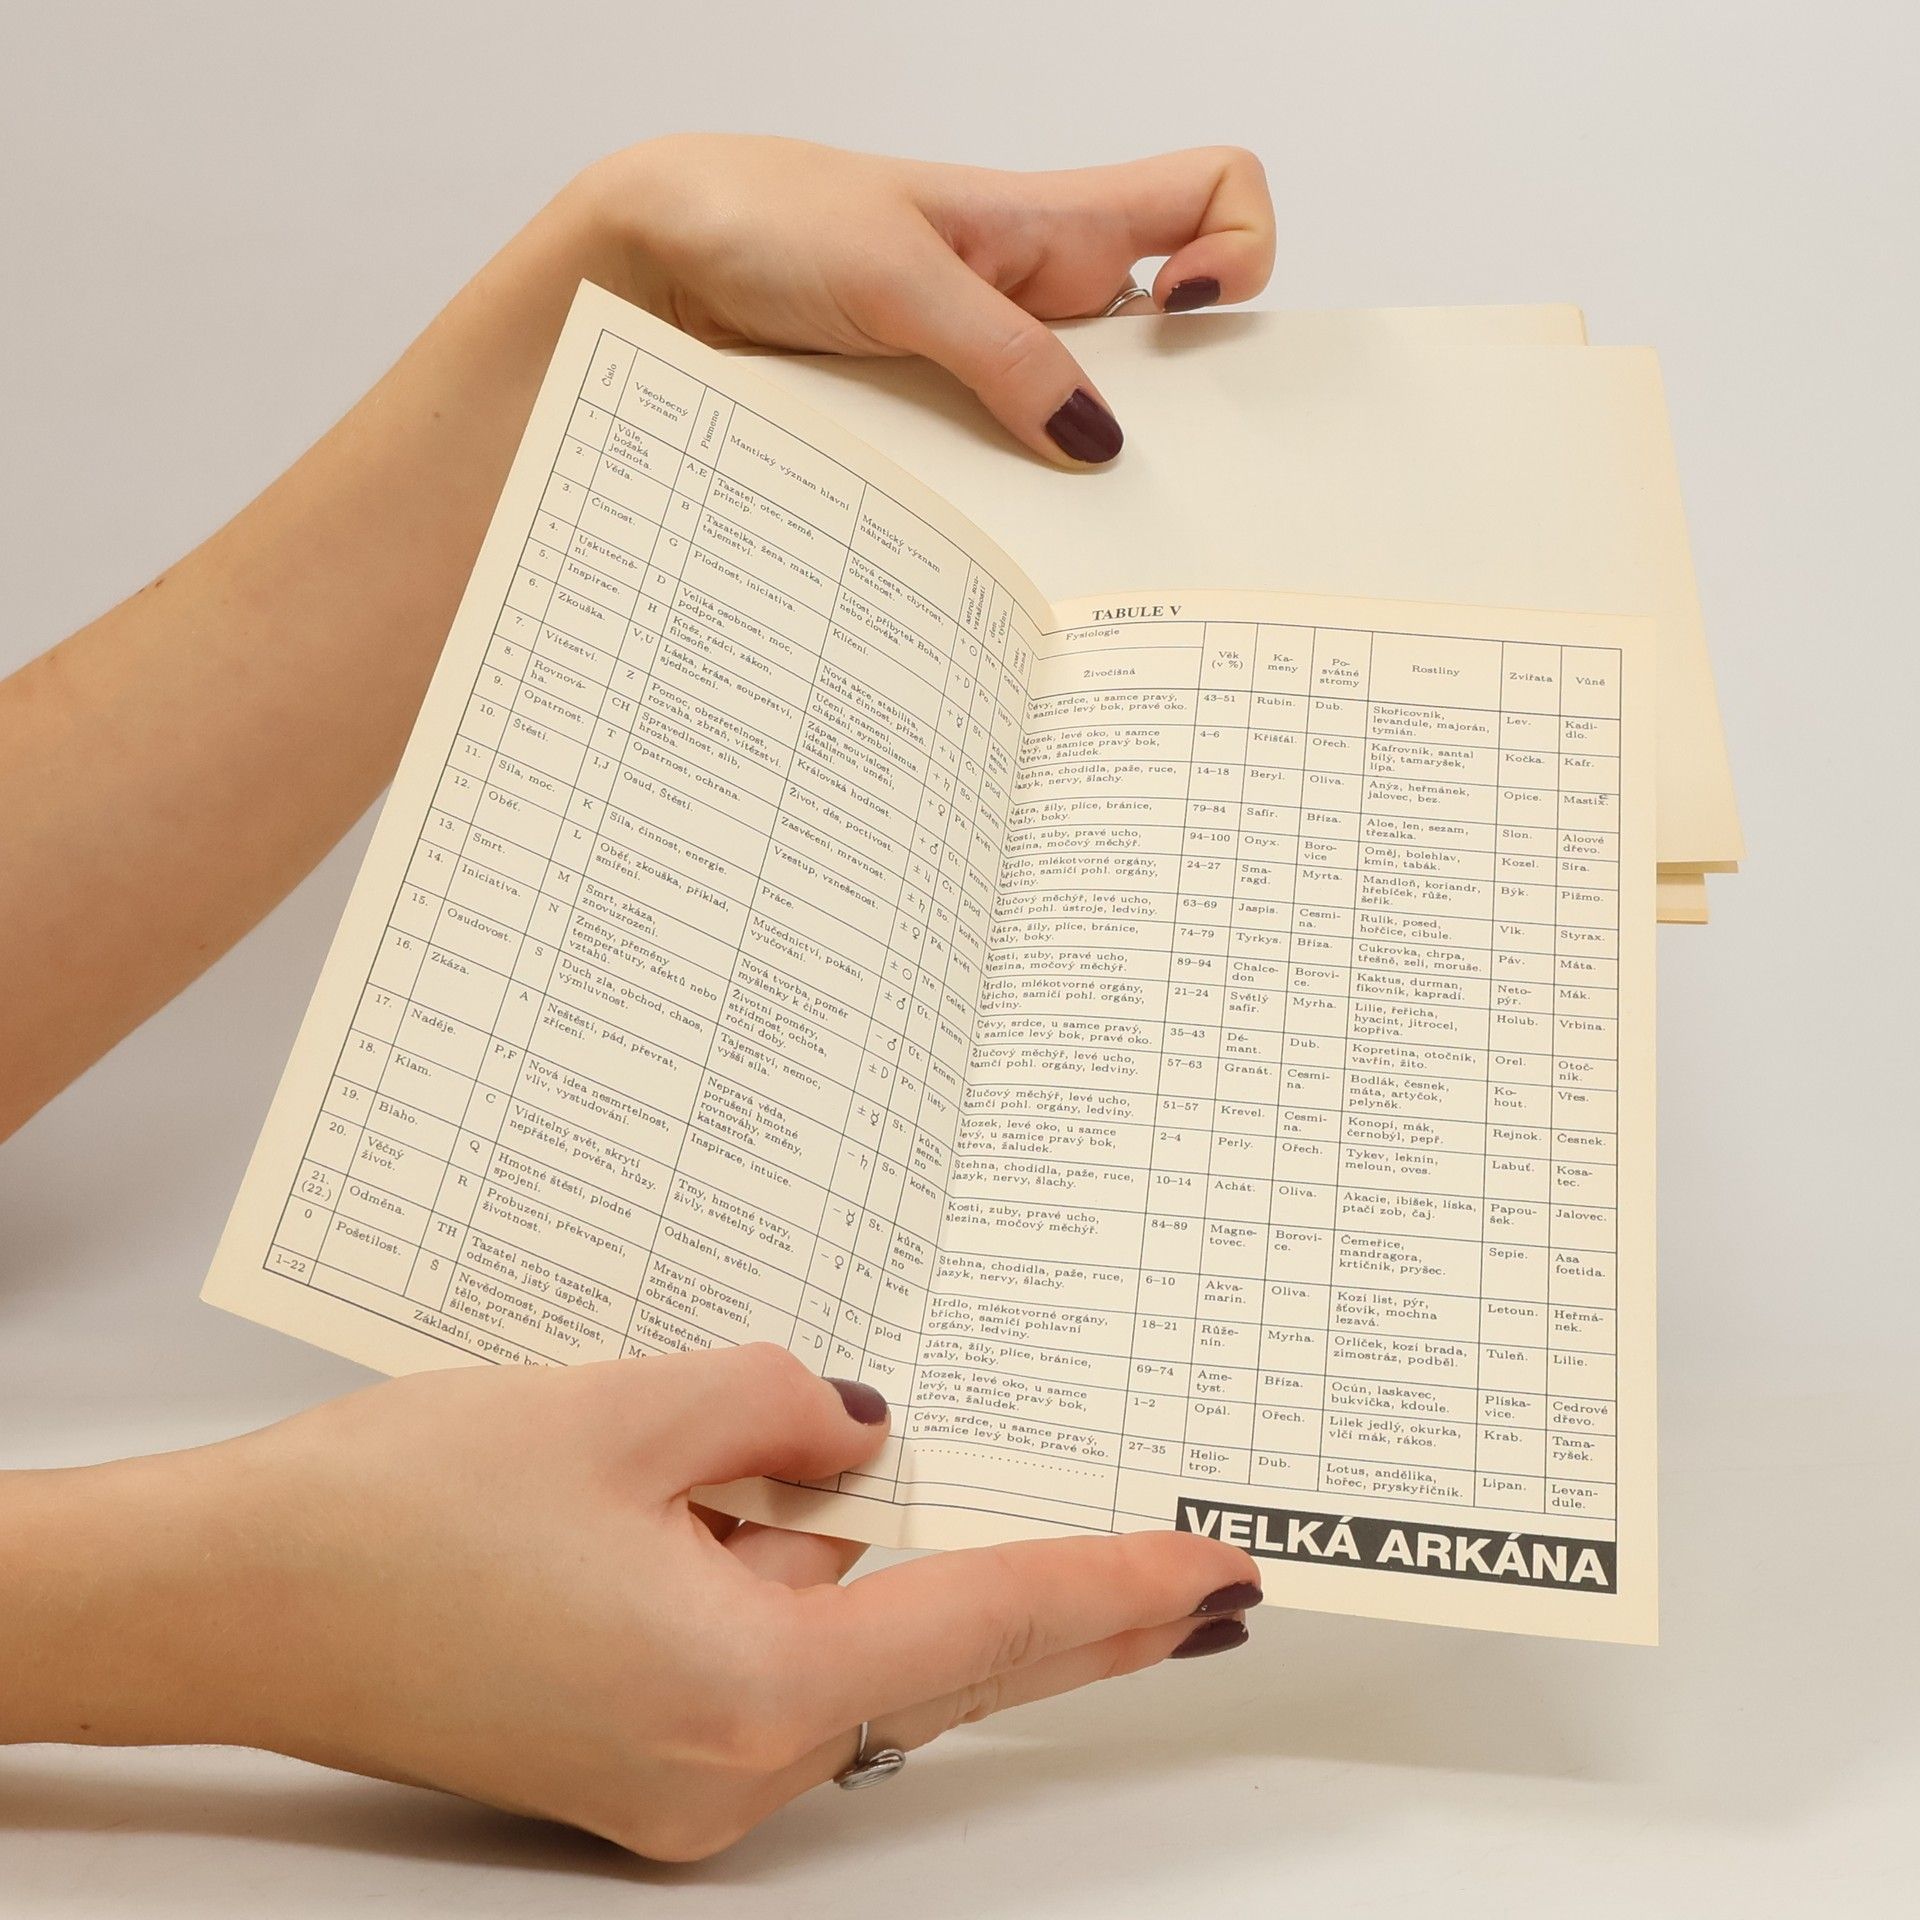 TABULE V
Číslo
Všeobecný
význam
Písmeno
Mantický význam hlavní
Mantický význam
náhradní
astrol. sou-
vztažnosti
den
v týdnu
rost-
linná
Fysiologie
Živočišná
Věk
(v %)
Ka-
meny
Po-
svátné
stromy
Rostliny
Zvířata
Vůně
1.
Vůle,
božská
jednota.
A,E
Tazatel, otec, země,
princip.
Nová cesta, chytrost,
obratnost.
+ ☉
Ne.
celek
Cévy, srdce, u samce pravý,
u samice levý bok, pravé oko.
43–51
Rubín.
Dub.
Skořicovník,
levandule, majorán,
tymián.
Lev.
Kadi-
dlo.
2.
Věda.
B
Tazatelka, žena, matka,
tajemství.
Lítost, příbytek Boha,
nebo člověka.
+ D
Po.
listy
Mozek, levé oko, u samce
levý, u samice pravý bok,
střeva, žaludek.
4–6
Křišťál.
Ořech.
Kafrovník, santal
bílý, tamaryšek,
lípa.
Kočka.
Kafr.
3.
Činnost.
G
Plodnost, iniciativa.
Klíčení.
+ ☿
St.
kůra,
seme-
no
Stehna, chodidla, paže, ruce,
jazyk, nervy, šlachy.
14–18
Beryl.
Oliva.
Anýz, heřmánek,
jalovec, bez.
Opice.
Mastix.
4.
Uskutečně-
ní.
D
Veliká osobnost, moc,
podpora.
Nová akce, stabilita,
kladná činnost, přízeň.
+ ♃
Čt.
plod
Játra, žíly, plíce, bránice,
svaly, boky.
79–84
Safír.
Bříza.
Aloe, len, sezam,
třezalka.
Slon.
Aloové
dřevo.
5.
Inspirace.
H
Kněz, rádci, zákon,
filosofie.
Učení, znamení,
chápání, symbolismus.
+ ♄
So.
kořen
Kosti, zuby, pravé ucho,
slezina, močový měchýř.
94–100
Onyx.
Boro-
vice
Oměj, bolehlav,
kmín, tabák.
Kozel.
Síra.
6.
Zkouška.
V,U
Láska, krása, soupeřství,
sjednocení.
Zápas, souvislost,
idealismus, umění,
lákání.
+ ♀
Pá.
květ
Hrdlo, mlékotvorné orgány,
břicho, samičí pohl. orgány,
ledviny.
24–27
Sma-
ragd.
Myrta.
Mandloň, koriandr,
hřebíček, růže,
šeřík.
Býk.
Pižmo.
7.
Vítězství.
Z
Pomoc, obezřetelnost,
rozvaha, zbraň, vítězství.
Královská hodnost.
+ ♂
Út.
kmen
Žlučový měchýř, levé ucho,
samčí pohl. ústroje, ledviny.
63–69
Jaspis.
Cesmí-
na.
Rulík, posed,
hořčice, cibule.
Vlk.
Styrax.
8.
Rovnová-
ha.
CH
Spravedlnost, slib,
hrozba.
Život, děs, poctivost.
± ♃
Čt.
plod
Játra, žíly, plíce, bránice,
svaly, boky.
74–79
Tyrkys.
Bříza.
Cukrovka, chrpa,
třešně, zelí, moruše.
Páv.
Máta.
9.
Opatrnost.
T
Opatrnost, ochrana.
Zasvěcení, mravnost.
± ♄
So.
kořen
Kosti, zuby, pravé ucho,
slezina, močový měchýř.
89–94
Chalce-
don
Borovi-
ce.
Kaktus, durman,
fikovník, kapradí.
Neto-
pýr.
Mák.
10.
Štěstí.
I,J
Osud, Štěstí.
Vzestup, vznešenost.
± ♀
Pá.
květ
Hrdlo, mlékotvorné orgány,
břicho, samičí pohl. orgány,
ledviny.
21–24
Světlý
safír.
Myrha.
Lilie, řeřicha,
hyacint, jitrocel,
kopřiva.
Holub.
Vrbina.
11.
Síla, moc.
K
Síla, činnost, energie.
Práce.
± ☉
Ne.
celek
Cévy, srdce, u samce pravý,
u samice levý bok, pravé oko.
35–43
Dé-
mant.
Dub.
Kopretina, otočník,
vavřín, žito.
Orel.
Otoč-
ník.
12.
Oběť.
L
Oběť, zkouška, příklad,
smíření.
Mučednictví, pokání,
vyučování.
± ♂
Út.
kmen
Žlučový měchýř, levé ucho,
samčí pohl. orgány, ledviny.
57–63
Granát.
Cesmí-
na.
Bodlák, česnek,
máta, artyčok,
pelyněk.
Ko-
hout.
Vřes.
13.
Smrt.
M
Smrt, zkáza,
znovuzrození.
Nová tvorba, poměr
myšlenky k činu.
– ♂
Út.
kmen
Žlučový měchýř, levé ucho,
samčí pohl. orgány, ledviny.
51–57
Krevel.
Cesmí-
na.
Konopí, mák,
černobýl, pepř.
Rejnok.
Česnek.
14.
Iniciativa.
N
Změny, přeměny
temperatury, afektů nebo
vztahů.
Životní poměry,
střídmost, ochota,
roční doby.
± D
Po.
listy
Mozek, levé oko, u samce
levý, u samice pravý bok,
střeva, žaludek.
2–4
Perly.
Ořech.
Tykev, leknín,
meloun, oves.
Labuť.
Kosa-
tec.
15.
Osudovost.
S
Duch zla, obchod, chaos,
výmluvnost.
Tajemství, nemoc,
vyšší síla.
± ☿
St.
kůra,
seme-
no
Stehna, chodidla, paže, ruce,
jazyk, nervy, šlachy.
10–14
Achát.
Oliva.
Akacie, ibišek, líska,
ptačí zob, čaj.
Papou-
šek.
Jalovec.
16.
Zkáza.
A
Neštěstí, pád, převrat,
zřícení.
Nepravá věda,
porušení hmotné
rovnováhy, změny,
katastrofa.
– ♄
So.
kořen
Kosti, zuby, pravé ucho,
slezina, močový měchýř.
84–89
Magne-
tovec.
Borovi-
ce.
Čemeřice,
mandragora,
krtičník, pryšec.
Sepie.
Asa
foetida.
17.
Naděje.
P,F
Nová idea nesmrtelnost,
vliv, vystudování.
Inspirace, intuice.
– ☿
St.
kůra,
seme-
no
Stehna, chodidla, paže, ruce,
jazyk, nervy, šlachy.
6–10
Akva-
marín.
Oliva.
Kozí list, pýr,
šťovík, mochna
lezavá.
Letoun.
Heřmá-
nek.
18.
Klam.
C
Viditelný svět, skrytí
nepřátelé, pověra, hrůzy.
Tmy, hmotné tvary,
živly, světelný odraz.
– ♀
Pá.
květ
Hrdlo, mlékotvorné orgány,
břicho, samičí pohlavní
orgány, ledviny.
18–21
Růže-
nín.
Myrha.
Orlíček, kozí brada,
zimostráz, podběl.
Tuleň.
Lilie.
19.
Blaho.
Q
Hmotné štěstí, plodné
spojení.
Odhalení, světlo.
– ♃
Čt.
plod
Játra, žíly, plíce, bránice,
svaly, boky.
69–74
Ame-
tyst.
Bříza.
Ocún, laskavec,
bukvička, kdoule.
Plíska-
vice.
Cedrové
dřevo.
20.
Věčný
život.
R
Probuzení, překvapení,
životnost.
Mravní obrození,
změna postavení,
obrácení.
– D
Po.
listy
Mozek, levé oko, u samce
levý, u samice pravý bok,
střeva, žaludek.
1–2
Opál.
Ořech.
Lilek jedlý, okurka,
vlčí mák, rákos.
Krab.
Tama-
ryšek.
21.
(22.)
Odměna.
TH
Tazatel nebo tazatelka,
odměna, jistý úspěch.
Uskutečnění
Cévy, srdce, u samce pravý,
u samice levý bok, pravé oko.
27–35
Helio-
trop.
Dub.
Lotus, andělika,
hořec, pryskyřičník.
Lipan.
Levan-
dule.
0
Pošetilost.
Š
Nevědomost, pošetilost,
tělo, poranění hlavy,
šílenství.
1–22
Základní, opěrné
VELKÁ ARKÁNA